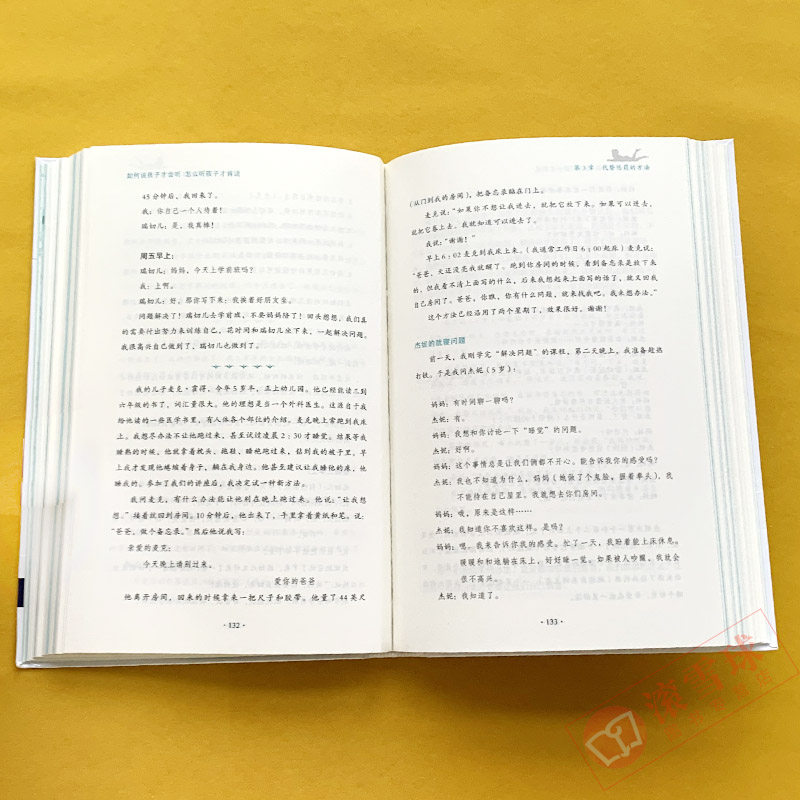 如何说孩子才会听 怎么听孩子才肯说
45分钟后，我回来了。
我：你自己一个人待着！
瑞切儿：是，我真棒！
周五早上：
瑞切儿：妈妈，今天上学前班吗？
我：上啊。
瑞切儿：好，那你写下来：我挨着好朋友坐。
问题解决了！瑞切儿去学前班，不要妈妈陪了！回头想想，我们真
的需要付出努力来训练自己，花时间和瑞切儿坐下来，一起解决问题。
我很高兴自己做到了，瑞切儿也做到了。
我的儿子麦克·霍得，今年5岁半，正上幼儿园。他已经能读三到
六年级的书了，词汇量很大。他的理想是当一个外科医生。这源于我
给他读的一些医学书里，有人体各个部位的介绍。麦克晚上常跑到我床
上。我想尽办法不让他跑过来，甚至试过凌晨2：30才睡觉。结果等我
睡熟的时候，他就拿着枕头、拖鞋、睡袍跑过来，钻到我的被子里，早
上我才发现他蜷缩着身子，躺在我身边。他甚至建议让我睡他的床，他
睡我的。参加了我们的讲座后，我决定试一种新方法。
我问麦克，有什么办法能让他别在晚上跑过来。他说：“让我想
想。”接着就回到房间。10分钟后，他出来了，手里拿着黄纸和笔，说：
“爸爸，做个备忘录。”然后他说我写：
亲爱的麦克：
今天晚上请别过来。
爱你的爸爸
他离开房间，回来的时候拿来一把尺子和胶带。他量了44英尺
·132·
第3章 代替惩罚的方法
（从门到我的房间），把备忘录贴在门上。
麦克说：“如果你不想让我进去，就把它放下来。如果可以进去，
就把它卷上去。我就知道可以进去了。
我说：“谢谢！”
早上6：02麦克到我床上来。（我通常工作日6：00起床）麦克说：
“爸爸，天还没亮我就醒了。跑到你房间的时候，看到备忘录是放下来
的，但我看不清上面写的什么，后来我想起来上面写的话了，就又回我
自己房间了。爸爸，你瞧，你有什么问题，就来找我吧。我来想办法。”
这个方法已经沿用了两个星期了，效果很好，谢谢！
杰妮的就寝问题
前一天，我刚学完“解决问题”的课程，第二天晚上，我准备趁热
打铁。于是我问杰妮（5岁）：
妈妈：有时间聊一聊吗？
杰妮：有。
妈妈：我想和你讨论一下“睡觉”的问题。
杰妮：好啊。
妈妈：这个事情总是让我们俩都不开心。能告诉我你的感受吗？
杰妮：我也不知道为什么，妈妈（她做了个鬼脸，握着拳头），我
不能待在自己屋里。我就想去你们房间。
妈妈：哦，原来是这样……
杰妮：我知道你不喜欢这样。是吗？
妈妈：嗯。我来告诉你我的感受。忙了一天，我盼着能上床休息，
暖暖和和地躺在床上，好好睡一觉。如果被人吵醒，我就会
很不高兴。
杰妮：我知道了。
·133·
滚雪球